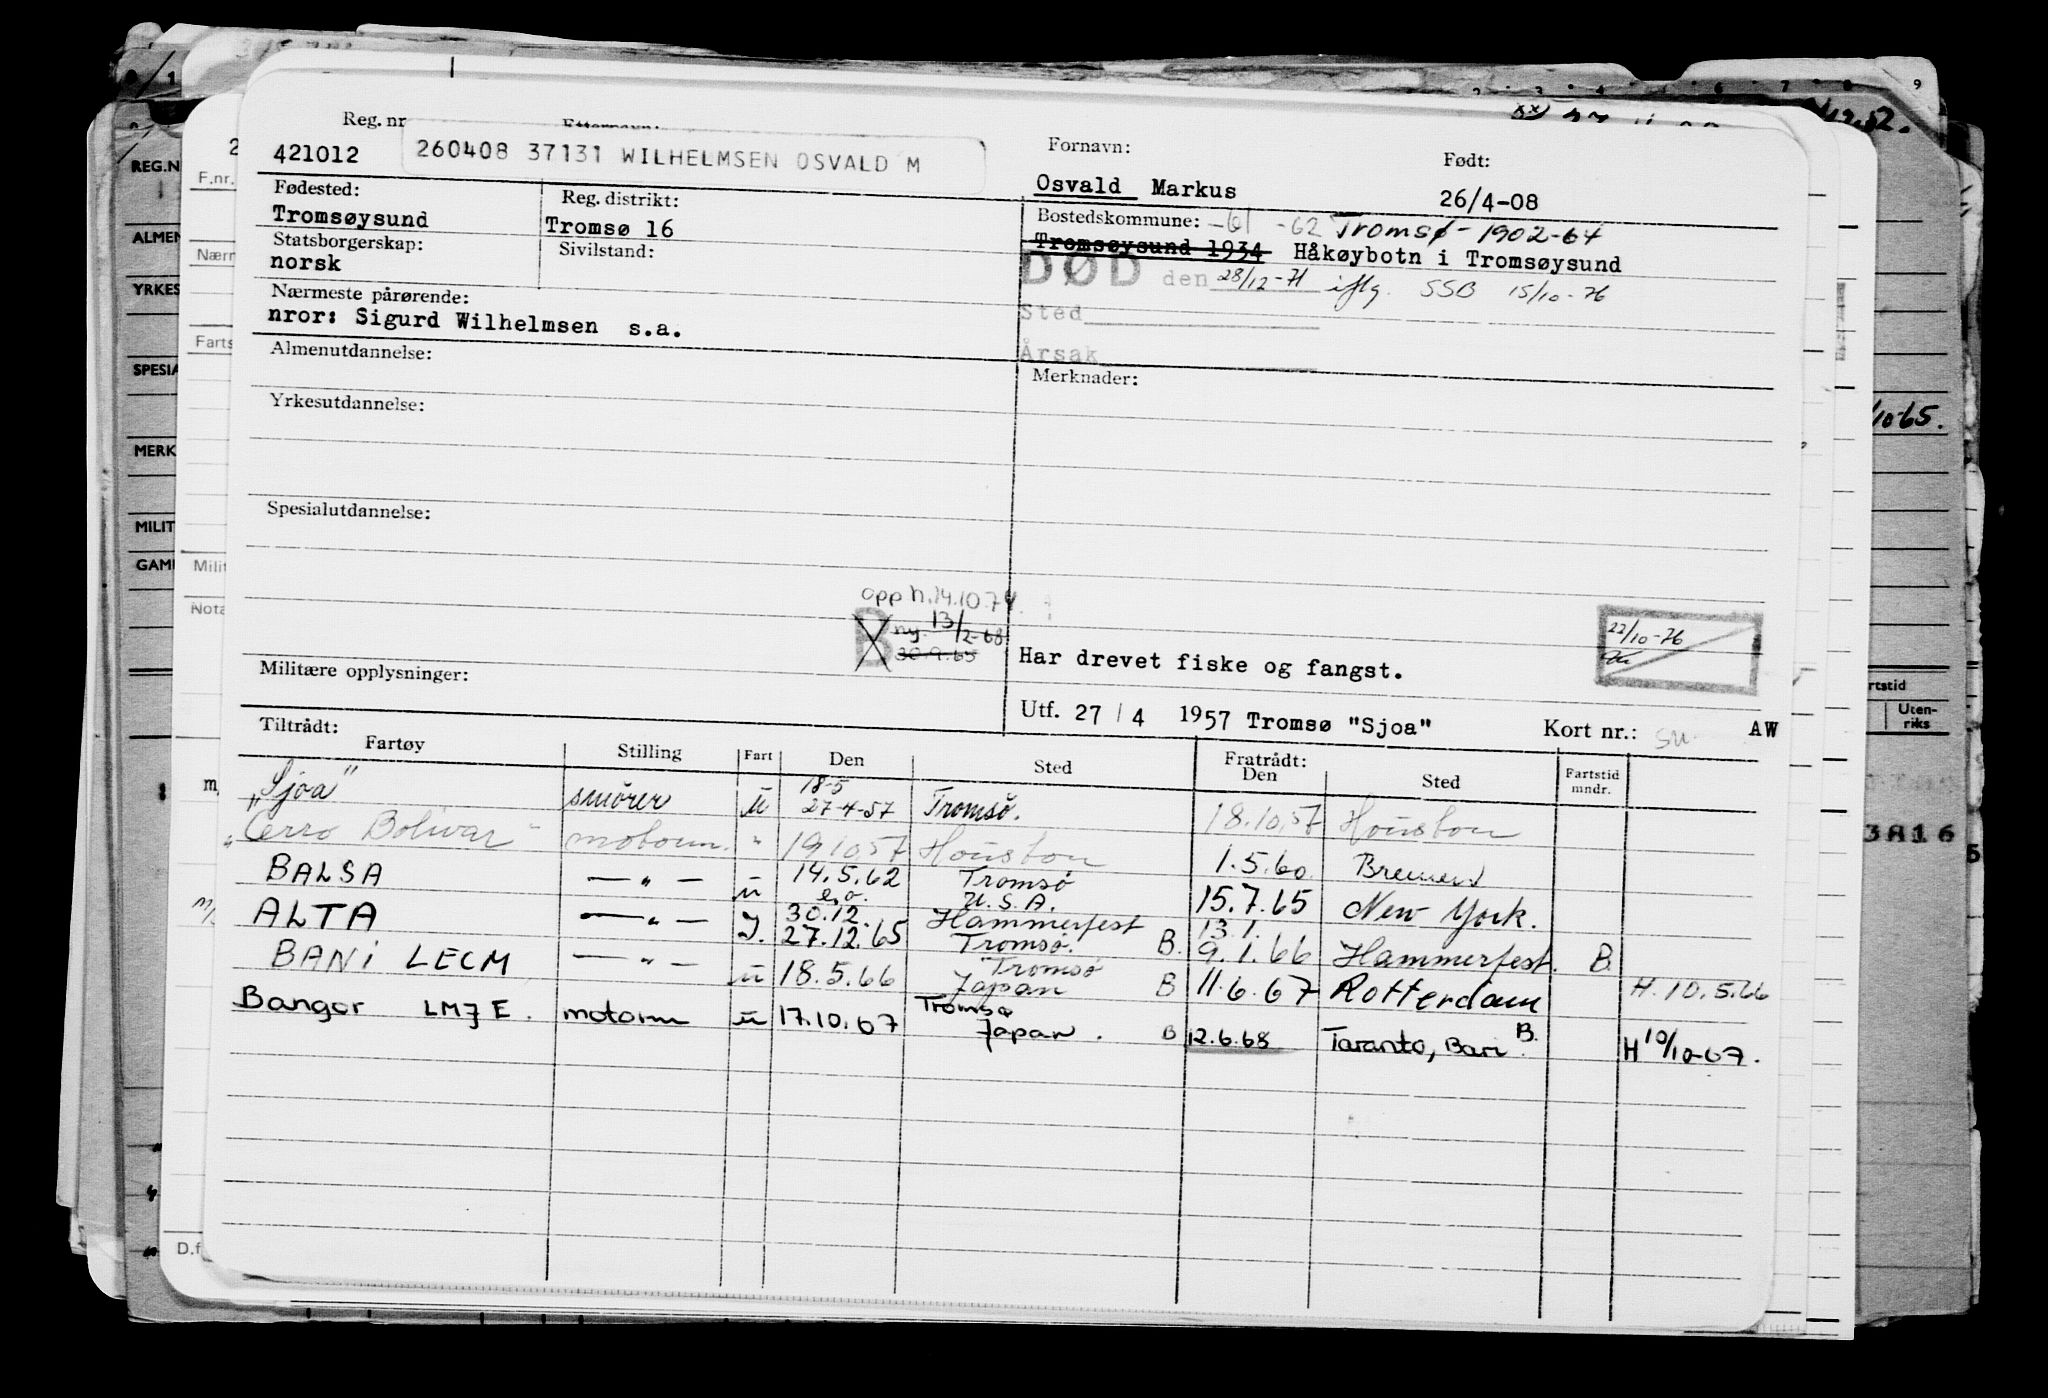 Reg. nr
421012
260408 37131 WILHELMSEN OSVALD M
Fornavn:
Osvald Markus
Født:
26/4-08
Fødested:
Tromsøysund
Reg. distrikt:
Tromsø 16
Bostedskommune: -61 -62 Tromsø - 1902-64
Tromsøysund 1934 Håkøybotn i Tromsøysund
Statsborgerskap:
norsk
Sivilstand:
DØD den 28/12-71 iflg. SSB 15/10-76
Sted
Årsak
Nærmeste pårørende:
nror: Sigurd Wilhelmsen s.a.
Almenutdannelse:
Merknader:
Yrkesutdannelse:
Spesialutdannelse:
opph. 14.10.74
B ny. 13/2-68
30.9.65
22/10-76
Har drevet fiske og fangst.
Militære opplysninger:
Utf. 27/4 1957 Tromsø "Sjoa" Kort nr.: AW
Tiltrådt:
Fartøy Stilling Fart Den Sted Fratrådt: Den Sted Fartstid mndr.
"Sjoa" smører u 18-5 27-4-57 Tromsø. 18.10.57 Houston
"Cerro Bolivar" motorm. " 19.10.57 Houston 1.5.60 Bremen
BALSA — " — u 14.5.62 e.o. Tromsø U.S.A. 15.7.65 New York.
ALTA — " — I. 30.12. 27.12.65 Hammerfest Tromsø. B. 13.1. 9.1.66 Hammerfest. B.
BANI LECM — " — u 18.5.66 Tromsø Japan B 11.6.67 Rotterdam H. 10.5.66
Bangor LMJE. motorm u 17.10.67 Tromsø Japan. B 12.6.68 Taranto, Bari. B. H 10/10-67.
REG.N
F.nr.
ALMEN
Nærm
YRKES
Farts
SPESIA
MERK
MILIT
GAM
Milit
Nota
D.f
/10-65.
rtstid
Uten-
riks
3A16